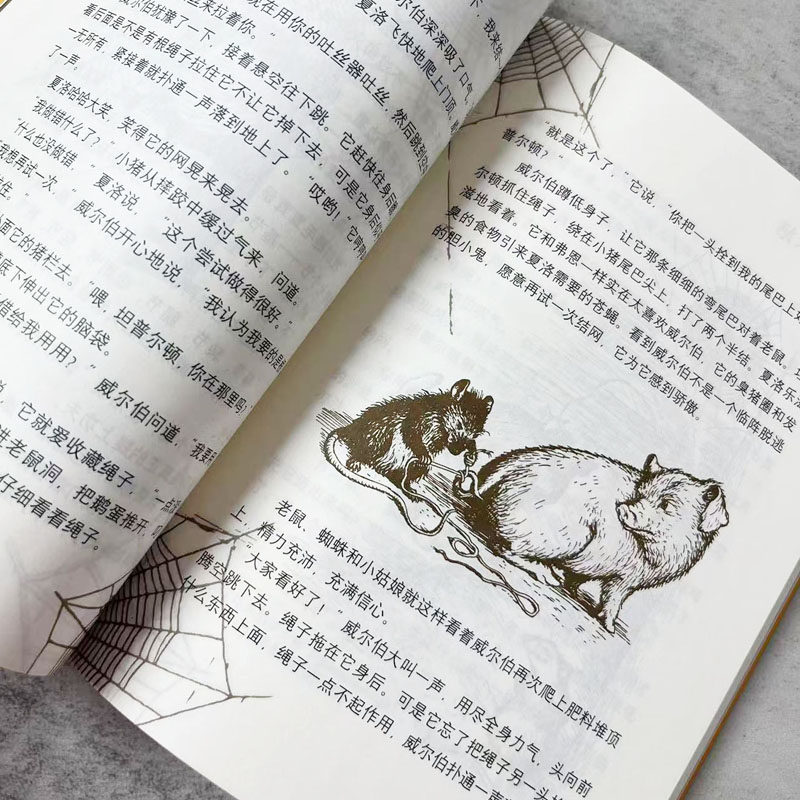 我来给
威尔伯深深吸了口气。
夏洛飞快地爬上门顶，
在用你的吐丝器吐丝，然后跳到
丝来拉着你。”
威尔伯犹豫了一下，接着悬空往下跳。它赶快往身后
看后面是不是有根绳子拉住它不让它掉下去，可是它身后
一无所有，紧接着就扑通一声落到地上了。“哎哟！”它哼
了一声。
夏洛哈哈大笑，笑得它的网晃来晃去。
“我做错什么了？”小猪从摔跤中缓过气来，问道。
“什么也没做错，”夏洛说，“这个尝试做得很好。”
我想再试一次，”威尔伯开心地说，“我认为我要的是
住。
面它的猪栏去。“喂，坦普尔顿，你在那里吗
底下伸出它的脑袋。
借给我用用？”威尔伯问道，“我要
，它就爱收藏绳子，“一点
进老鼠洞，把鹅蛋推开
仔细看看绳子。
“就是这个了，”它说，“你把一头拴到我的尾巴上好
普尔顿？”
威尔伯蹲低身子，让它那条细细的弯尾巴对着老鼠。
尔顿抓住绳子，绕在小猪尾巴尖上，打了两个半结。夏洛乐
滋地看着。它和弗恩一样实在太喜欢威尔伯，它的臭猪圈和发
臭的食物引来夏洛需要的苍蝇。看到威尔伯不是一个临阵脱逃
的胆小鬼，愿意再试一次结网，它为它感到骄傲。
老鼠、蜘蛛和小姑娘就这样看着威尔伯再次爬上肥料堆顶
上，精力充沛，充满信心。
“大家看好了！”威尔伯大叫一声，用尽全身力气，头向前
腾空跳下去。绳子拖在它身后。可是它忘了把绳子另一头
什么东西上面，绳子一点不起作用，威尔伯扑通一声